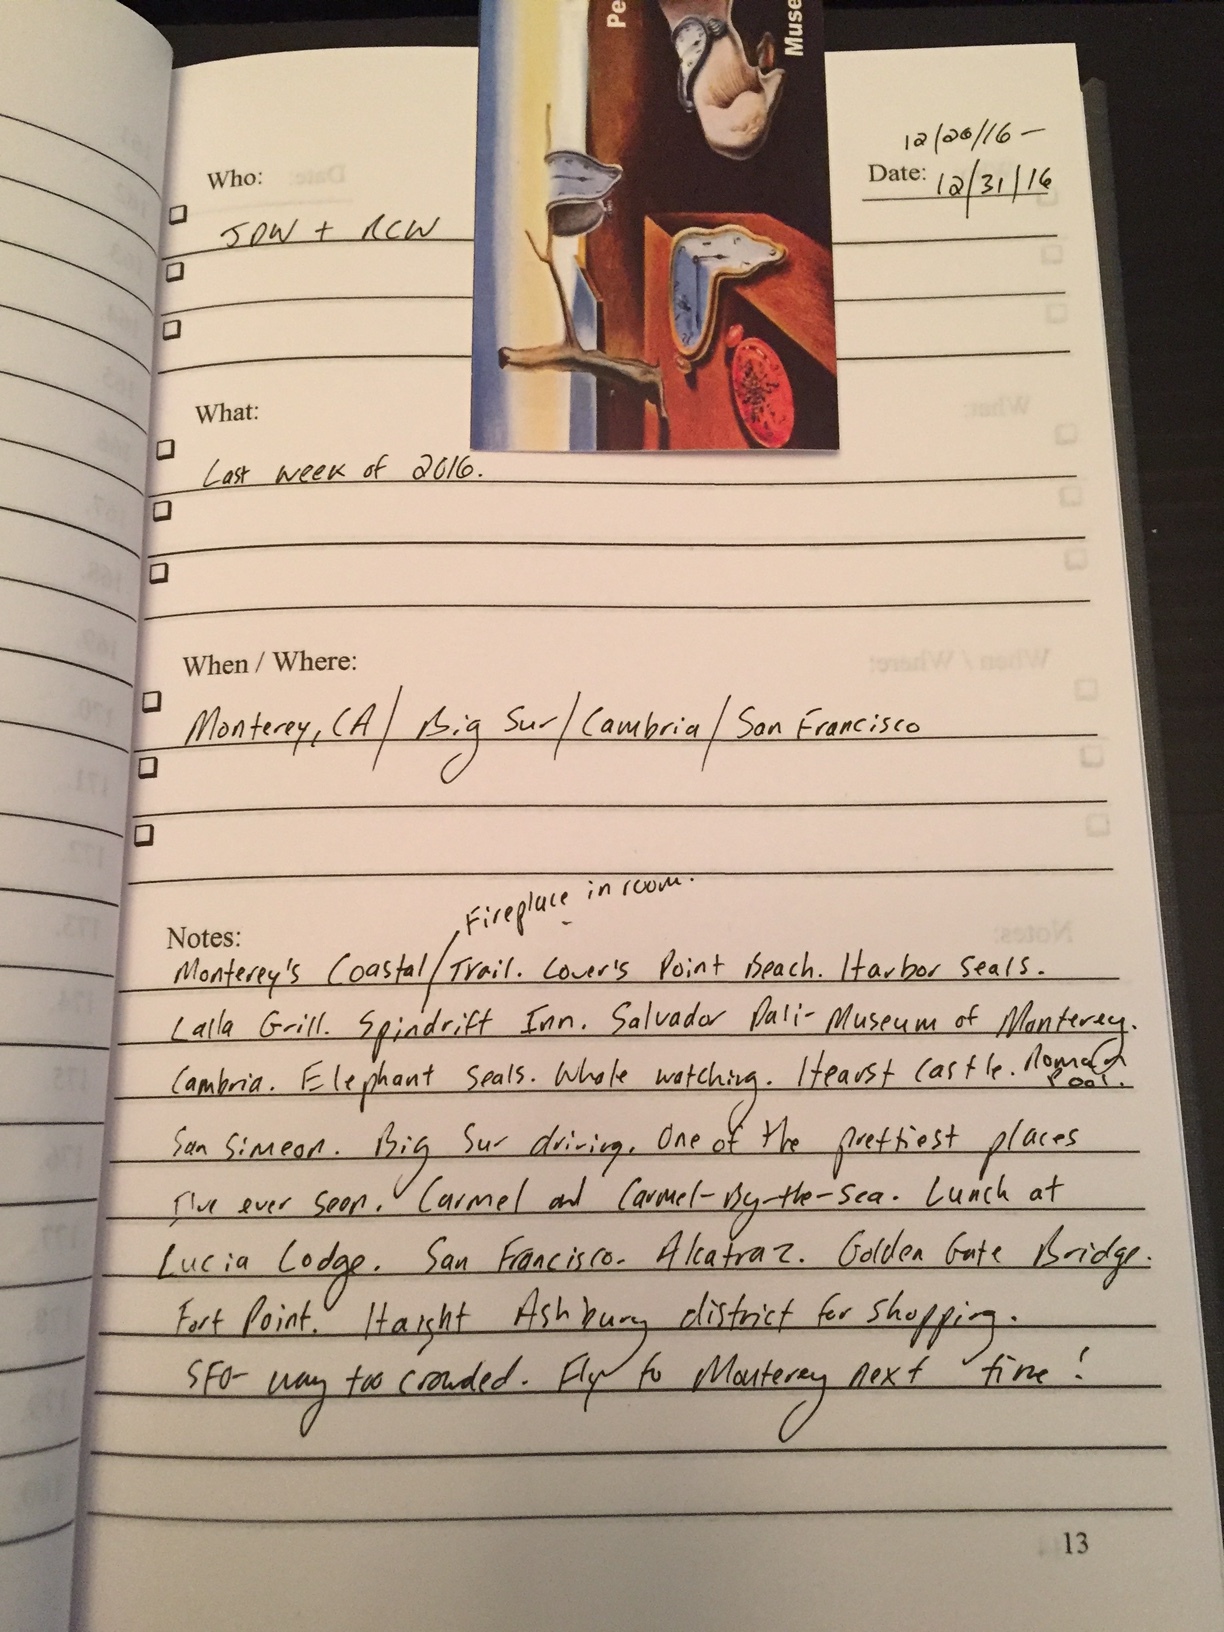 Pe
Muse
12/26/16 –
Who:
Date: 12/31/16
JDW + RCW
What:
Last week of 2016.
When / Where:
Monterey, CA / Big Sur / Cambria / San Francisco
Fireplace in room.
Notes:
Monterey's Coastal Trail. Lover's Point Beach. Harbor Seals.
Lalla Grill. Spindrift Inn. Salvador Dali- Museum of Monterey.
Cambria. Elephant Seals. Whale watching. Hearst Castle. Roman
Pool.
San Simeon. Big Sur driving. One of the prettiest places
I've ever seen. Carmel and Carmel-By-the-Sea. Lunch at
Lucia Lodge. San Francisco. Alcatraz. Golden Gate Bridge.
Fort Point. Haight Ashbury district for shopping.
SFO- way too crowded. Fly to Monterey next time!
13